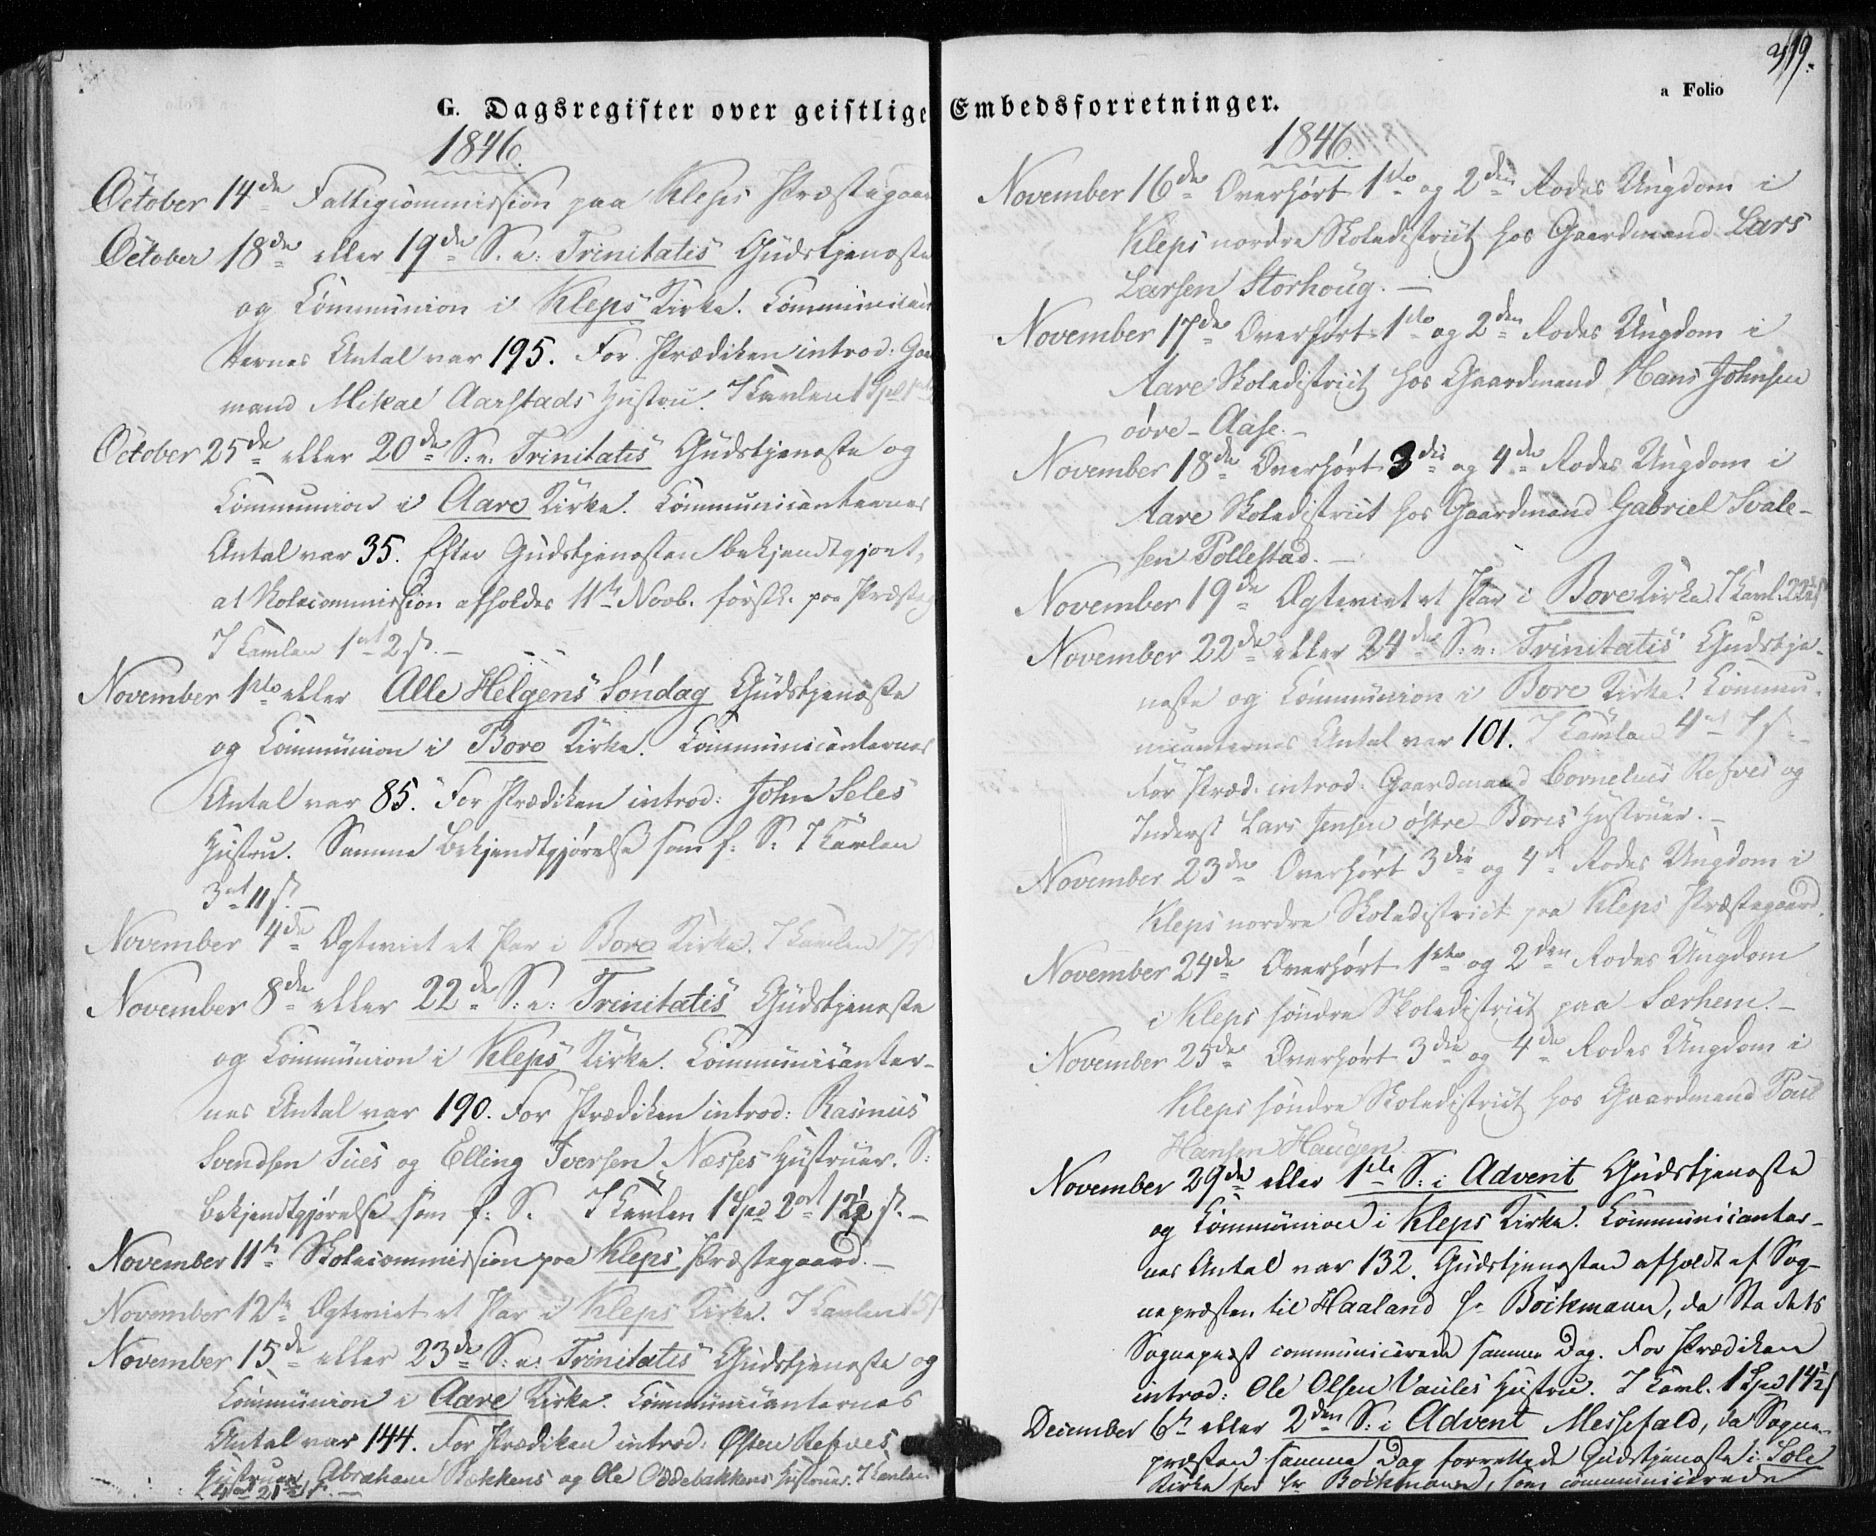 319.
a Folio
G. Dagsregister over geistlige Embedsforretninger.
1846.
October 14de Fattigcommission paa Kleps Præstegaar
October 18de eller 19de S. e: Trinitatis Gudstjeneste
og Communion i Kleps Kirke. Communican
ternes Antal var 195. For Prædiken introd: Gaa
mand Mikae Aarstads Hustru. I Tavlen 1 Spd
October 25de eller 20de S: e: Trinitatis Gudstjeneste og
Communion i Aare Kirke. Communicanternes
Antal var 35. Efter Gudstjenesten bekjendtgjort,
at Skolecommission afholdes 11te Novb. førstk. paa Præsteg
I Tavlen 1 ort 2 s. –
November 1ste eller Alle Helgens Søndag Gudstjeneste
og Communion i Bore Kirke. Communicanternes
Antal var 85. For Prædiken introd: John Seles
Hustru. Samme Bekjendtgjørelse som f: S. I Tavlen
3 ort 11 s. –
November 4de Ægteviet et Par i Bore Kirke. I Tavlen 17 s
November 8de eller 22de S: e: Trinitatis Gudstjeneste
og Communion i Kleps Kirke. Communicanter-
nes Antal var 190. For Prædiken introd: Rasmus
Svendsen Tues og Elling Iversen Næsses Hustruer. S:
bekjendtgjørelse som f: S. I Tavlen 1 Spd 2 ort 12½ s. –
November 11te Skolecommission paa Kleps Præstegaard. –
November 12te Ægteviet et Par i Kleps Kirke. I Tavlen 15 s
November 15de eller 23de S: e: Trinitatis Gudstjeneste og
Communion i Aare Kirke. Communicanternes
Antal var 144. For Prædiken introd: Østen Refves
Hustruer, Abraham Bakkens og Ole Oddebakkens Hustruer. I Tavlen
4 ort 21½ s. –
1846.
November 16de Overhørt 1ste og 2den Rodes Ungdom i
Kleps nordre Skoledistrict hos Gaardmand Lars
Larsen Storhoug. –
November 17de Overhørt 1ste og 2den Rodes Ungdom i
Aare Skoledistrict hos Gaardmand Hans Johnsen
øvre-Aase. –
November 18de Overhørt 3die og 4de Rodes Ungdom i
Aare Skoledistrict hos Gaardmand Gabriel Svale-
sen Pollestad. –
November 19de Ægteviet et Par i Bore Kirke. I Tavl. 22½ s
November 22de eller 24de S: e: Trinitatis Gudstje-
neste og Communion i Bore Kirke. Commu-
nicanternes Antal var 101. I Tavlen 4 ort 7 s. –
For Præd. introd: Gaardmand Cornelius Refves og
Inderst Lars Jensen østre-Bores Hustruer. –
November 23de Overhørt 3die og 4de Rodes Ungdom i
Kleps nordre Skoledistrict paa Kleps Præstegaard.
November 24de Overhørt 1ste og 2den Rodes Ungdom
i Kleps søndre Skoledistrict paa Særhem. –
November 25de Overhørt 3die og 4de Rodes Ungdom i
Kleps søndre Skoledistrict hos Gaardmand Poul
Hansen Haugen.
November 29de eller 1ste S: i Advent Gudstjeneste
og Communion i Kleps Kirke. Communicanter-
nes Antal var 132. Gudstjenesten afholdt af Sog-
nepræsten til Haaland Hr Böckmann, da Stedets
Sognepræst communicerede samme Dag. For Prædiken
introd: Ole Olsen Vaules Hustru. I Tavl. 1 Spd 14½ s
December 6te eller 2den S: i Advent Messefald, da Sogne-
præsten samme Dag forrettede Gudstjeneste i Sole
Kirke for Hr Böckmann, som communicerede